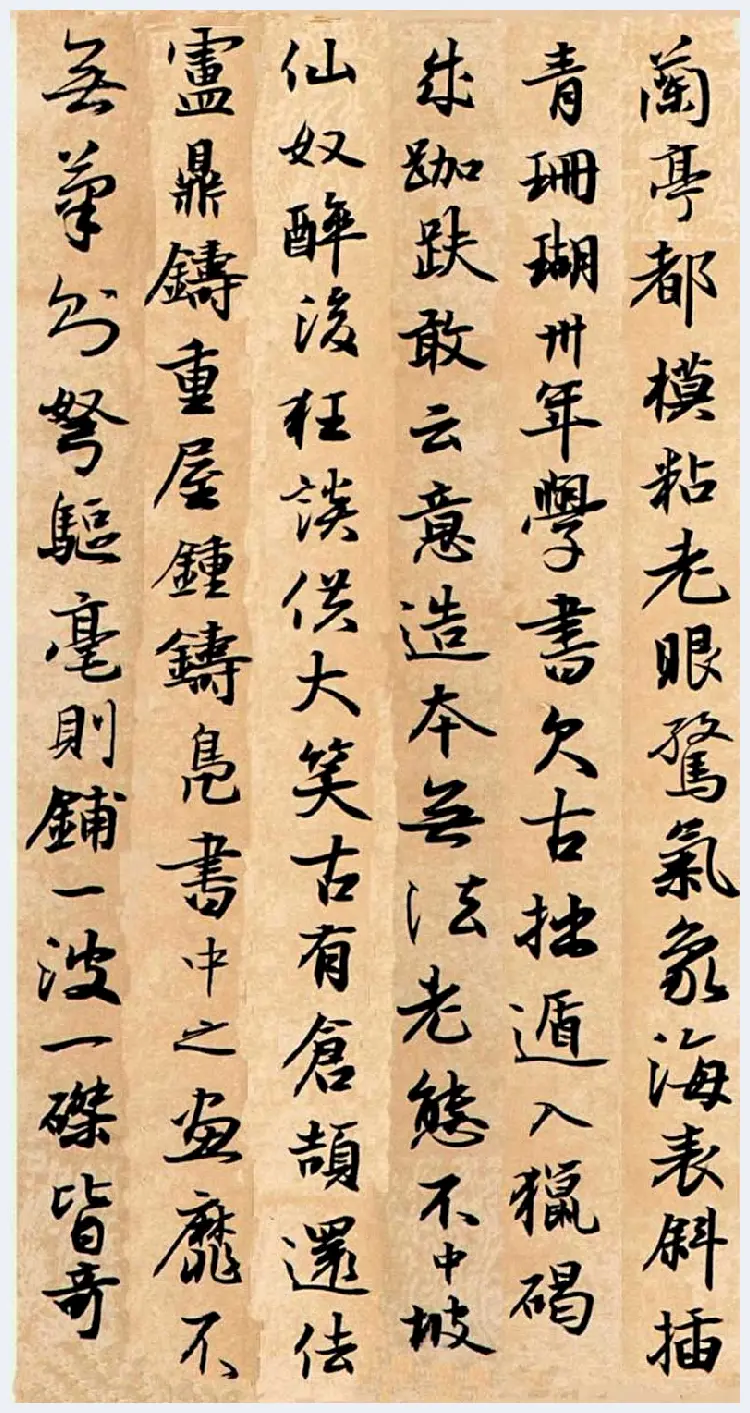 蘭亭都模粘老眼驚氣象海表斜插
青珊瑚卅年學書欠古拙遁入獵碣
成跏趺敢云意造本無法老態不中坡
仙奴醉後狂談供大笑古有倉頡還佉
盧鼎鑄重屋鍾鑄鳧書中之畫靡不
無筆則弩驅毫則鋪一波一磔皆奇